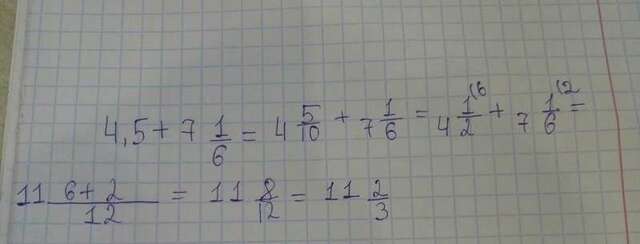 4,5 + 7 1/6 = 4 5/10 + 7 1/6 = 4 1/2 (6 + 7 1/6 (2 =
11 (6+2)/12 = 11 8/12 = 11 2/3